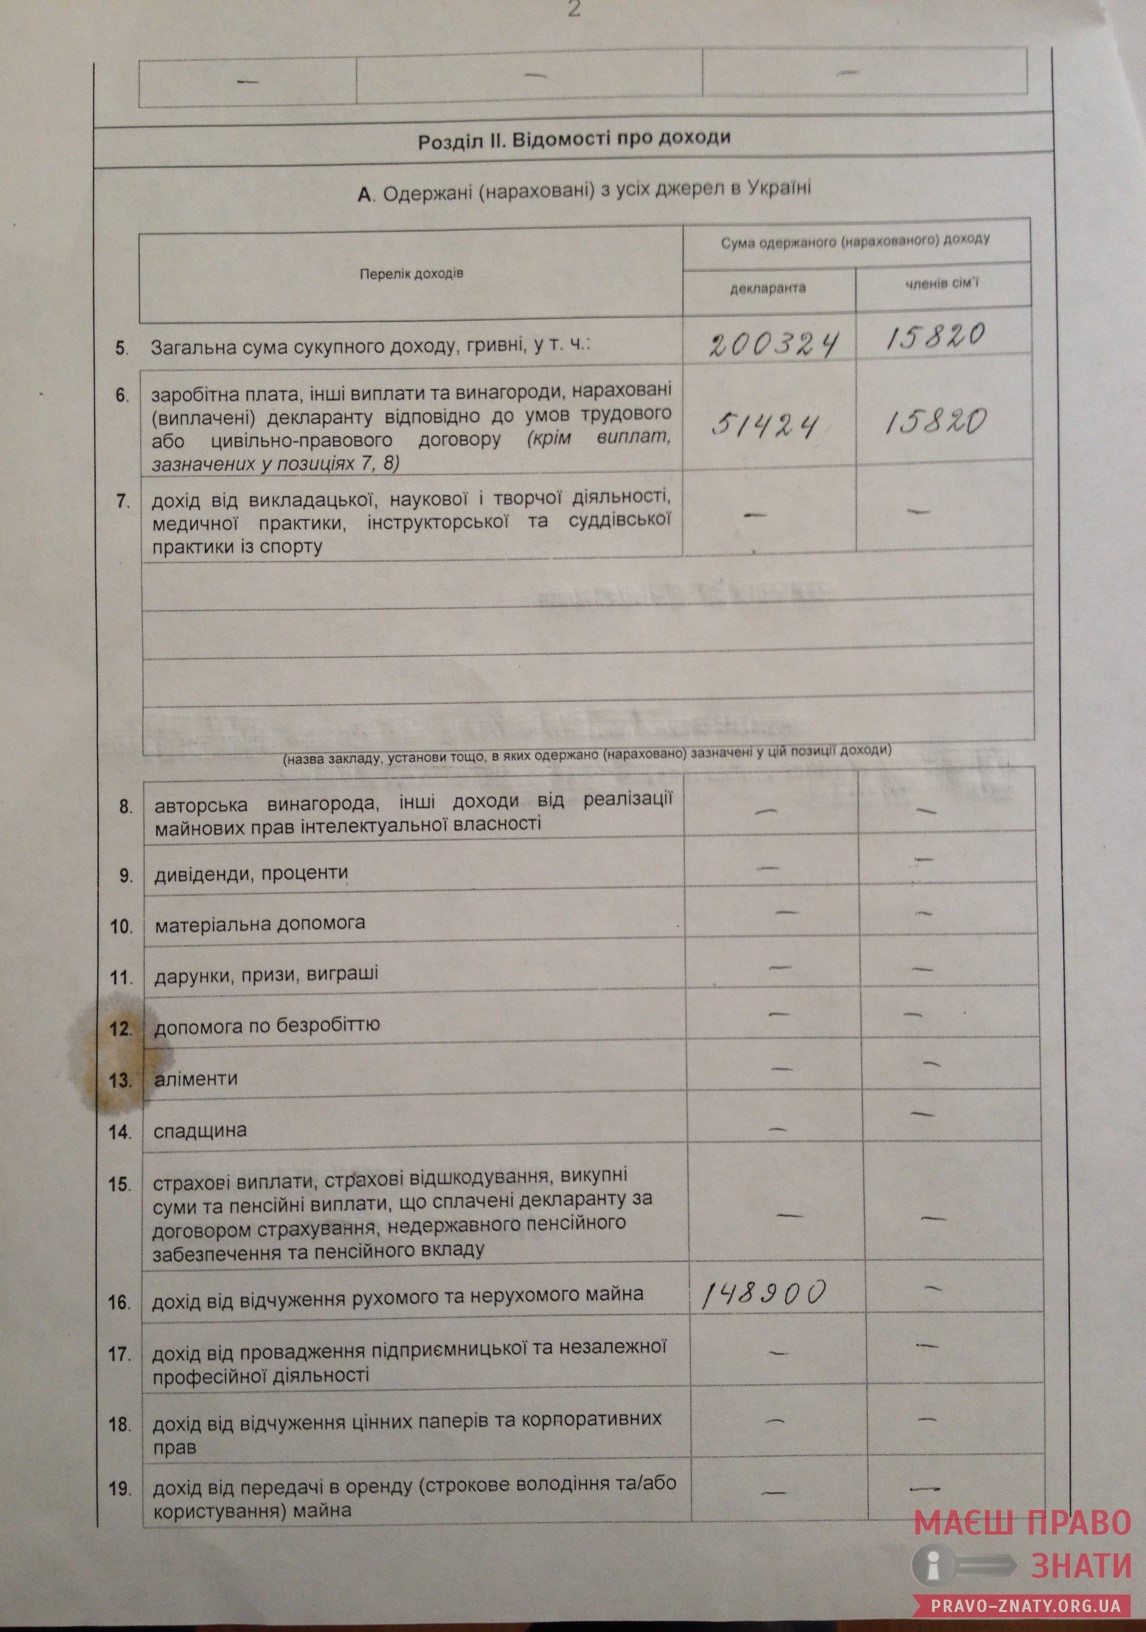 2
— — —
Розділ ІІ. Відомості про доходи
А. Одержані (нараховані) з усіх джерел в Україні
Перелік доходів
Сума одержаного (нарахованого) доходу
декларанта
членів сім'ї
5. Загальна сума сукупного доходу, гривні, у т. ч.: 200324 15820
6. заробітна плата, інші виплати та винагороди, нараховані
(виплачені) декларанту відповідно до умов трудового
або цивільно-правового договору (крім виплат, 51424 15820
зазначених у позиціях 7, 8)
7. дохід від викладацької, наукової і творчої діяльності,
медичної практики, інструкторської та суддівської — —
практики із спорту
(назва закладу, установи тощо, в яких одержано (нараховано) зазначені у цій позиції доходи)
8. авторська винагорода, інші доходи від реалізації — —
майнових прав інтелектуальної власності
9. дивіденди, проценти — —
10. матеріальна допомога — —
11. дарунки, призи, виграші — —
12. допомога по безробіттю — —
13. аліменти — —
14. спадщина — —
15. страхові виплати, страхові відшкодування, викупні
суми та пенсійні виплати, що сплачені декларанту за
договором страхування, недержавного пенсійного — —
забезпечення та пенсійного вкладу
16. дохід від відчуження рухомого та нерухомого майна 148900 —
17. дохід від провадження підприємницької та незалежної — —
професійної діяльності
18. дохід від відчуження цінних паперів та корпоративних — —
прав
19. дохід від передачі в оренду (строкове володіння та/або — —
користування) майна
МАЄШ ПРАВО
ЗНАТИ
PRAVO-ZNATY.ORG.UA